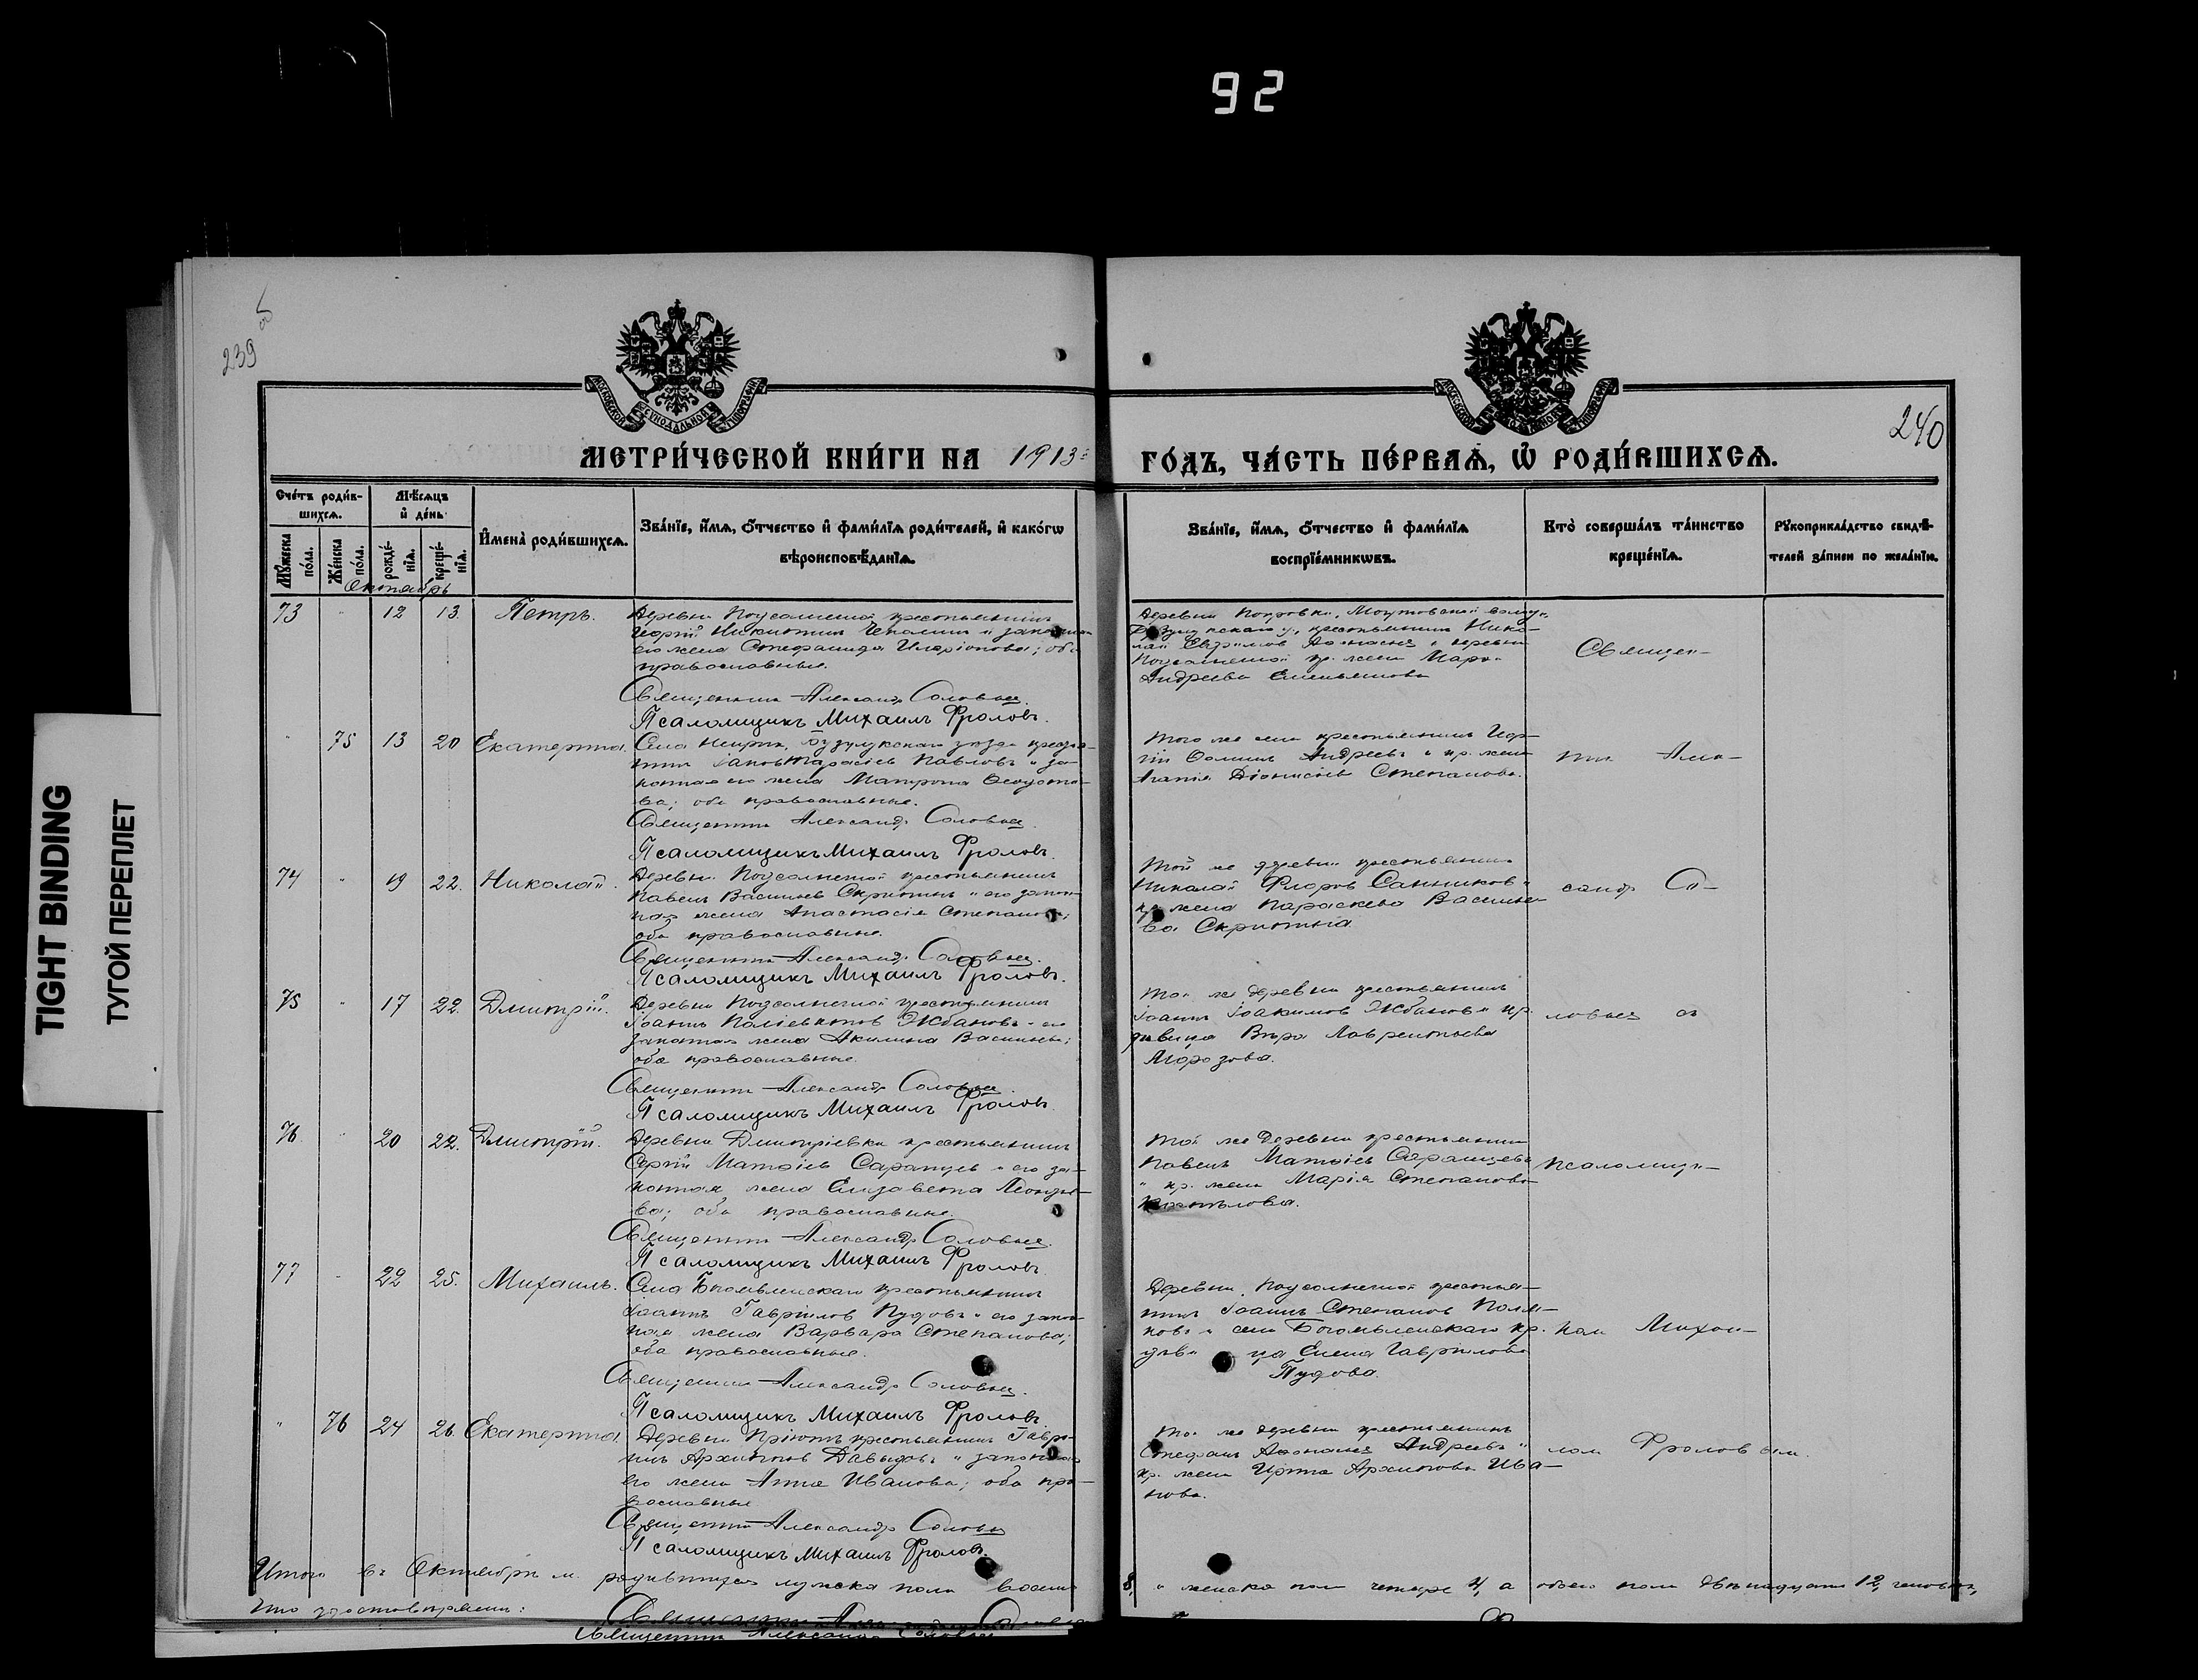 92
239
об
240
МОСКОВСКОЙ СѴНОДАЛЬНОЙ ТИПОГРАФІИ
МОСКОВСКОЙ СѴНОДАЛЬНОЙ ТИПОГРАФІИ
МЕТРИ́ЧЕСКОЙ КНИ́ГИ НА 1913й ГО́ДЪ, ЧА́СТЬ ПЕ́РВАѦ, Ѡ҆ РОДИ́ВШИХСѦ.
Сче́тъ роди́вшихсѧ.
Мꙋ́жеска по́ла.
Же́нска по́ла.
Мѣ́сѧцъ и҆ де́нь
рожде́нїѧ.
креще́нїѧ.
И҆мена̀ роди́вшихсѧ.
Зва́нїе, и҆́мѧ, ѻ҆́тчество и҆ фами́лїѧ роди́телей, и҆ како́гѡ вѣроисповѣ́данїѧ.
Зва́нїе, и҆́мѧ, ѻ҆́тчество и҆ фами́лїѧ воспрїе́мникѡвъ.
Кто̀ соверша́лъ та́инство креще́нїѧ.
Рꙋкоприкла́дство свидѣ́телей за́писи по жела́нїю.
Октябрь
73 " 12 13 Петръ.
Деревни Подсолнечной крестьянинъ
Георгій Никитинъ Чепалинъ и законная
его жена Стефанида Иларіонова; оба
православные.
Священникъ Александръ Соловьев
Псаломщикъ Михаилъ Фроловъ.
Деревни Покровки,
крестьянинъ Нико-
лай
Подсолнечной кр. жена
Андреева Емельянова
Священ-
" 75 13 20 Екатерина.
Села Бузулукскаго уѣзда крестья-
нинъ Іаковъ Тарасіевъ Павловъ и за-
конная его жена Матрона
ва; оба православные.
Священникъ Александръ Соловьев
Псаломщикъ Михаилъ Фроловъ.
Того же села крестьянинъ Геор-
гій Андреевъ и кр. жена
Агапія Діонисіева Степанова.
никъ Алек-
74 " 19 22. Николай.
Деревни Подсолнечной крестьянинъ
Павелъ Васильевъ Скрипинъ и его закон-
ная жена Анастасія Степанова;
оба православные.
Священникъ Александръ Соловьев.
Псаломщикъ Михаилъ Фроловъ.
Той же деревни крестьянинъ
Николай Флоровъ Санниковъ и
кр. жена Параскева Василье-
ва
сандръ Со-
75 " 17 22. Дмитрій.
Деревни Подсолнечной крестьянинъ
Іоаннъ Поліевктовъ Жбановъ и его
законная жена Акилина Васильева;
оба православные.
Священникъ Александръ Соловьев.
Псаломщикъ Михаилъ Фроловъ
Той же деревни крестьянинъ
Іоаннъ Іоакимовъ Жбановъ и кр.
дѣвица Вѣра Лаврентьева
Морозова.
ловьев съ
76. " 20 22. Дмитрій.
Деревни Дмитріевки крестьянинъ
Сергій Матѳіевъ Саранцевъ и его за-
конная жена Елизавета
ва; оба православные.
Священникъ Александръ Соловьев.
Псаломщикъ Михаилъ Фроловъ
Той же деревни крестьянинъ
Павелъ Матѳіевъ Саранцевъ
и кр. жена Марія Степанова
псаломщи-
77 " 22 25. Михаилъ.
Села Богомвленскаго крестьянинъ
Іоаннъ Гавріиловъ Пудовъ и его закон-
ная жена Варвара Степанова;
оба православные.
Священникъ Александръ Соловьев.
Псаломщикъ Михаилъ Фроловъ
Деревни Подсолнечной крестья-
нинъ Іоаннъ Степановъ
новъ и села кр.
дѣвица Елена Гавріилова
Пудова.
комъ Михаи-
" 76 24 26. Екатерина.
Деревни Пріютъ крестьянинъ Гаврі-
илъ Архиповъ Давыдовъ и законная
его жена Анна Иванова; оба пра-
вославные
Священникъ Александръ Соловьев
Псаломщикъ Михаилъ Фроловъ.
Той же деревни крестьянинъ
Стефанъ Андреевъ и
кр. жена Архипова Ива-
нова.
ломъ Фроловымъ.
Итого въ Октябрѣ м. родившихся мужска пола восемь 8, и женска пола четыре 4, а обоего пола двѣнадцать 12, человѣкъ,
что удостовѣряемъ:
Священникъ Александръ Соловьев
TIGHT BINDING
ТУГОЙ ПЕРЕПЛЕТ